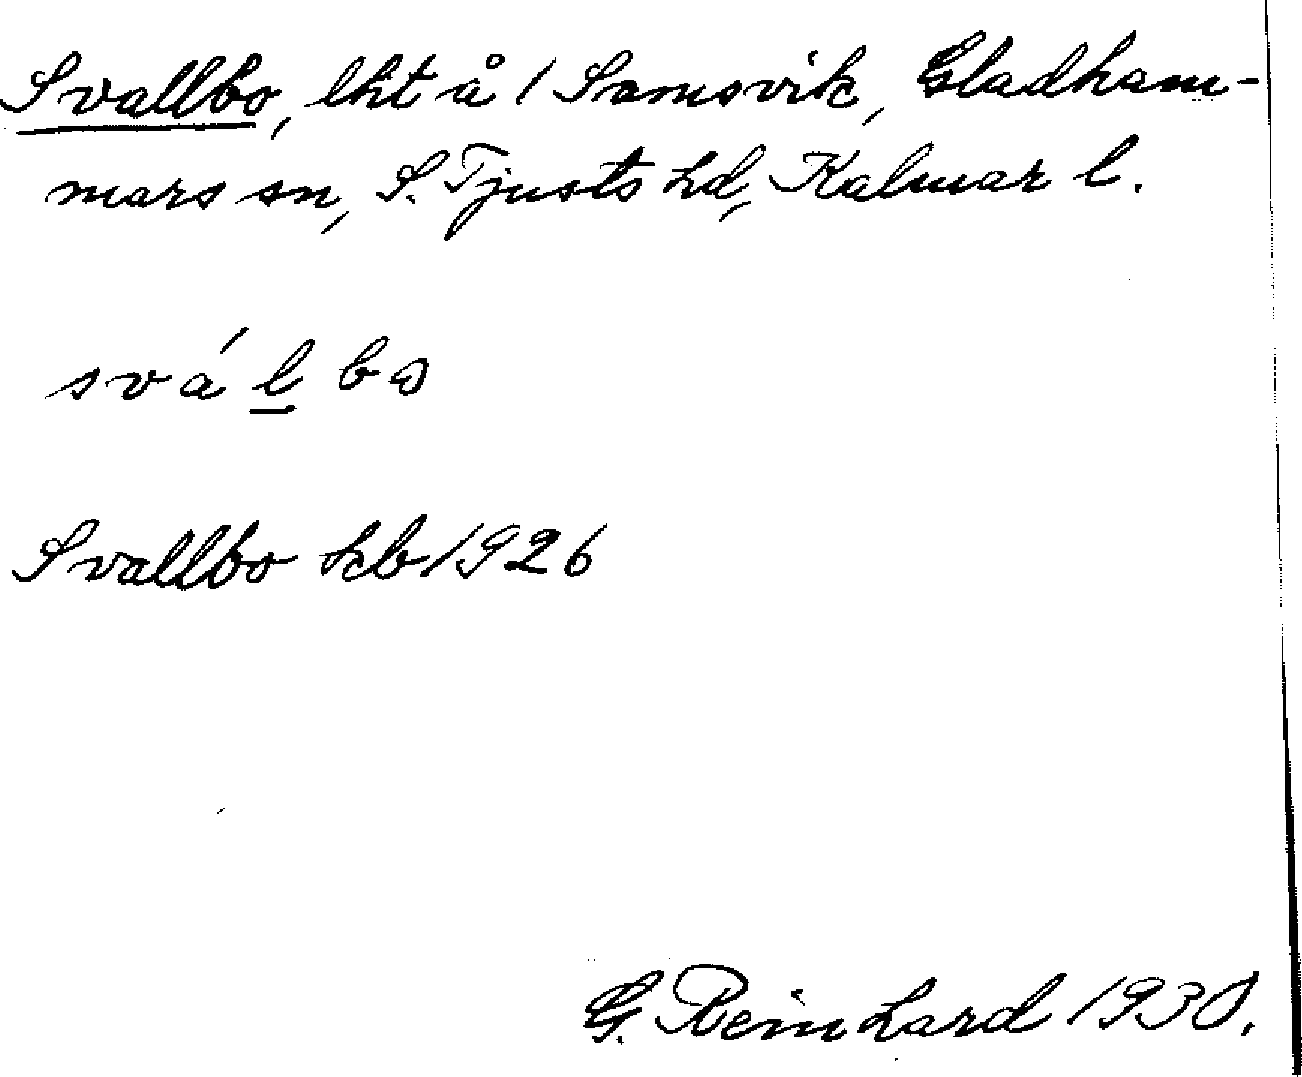 Svallbo, lht å 1 Samsvik, Gladham-
mars sn, S. Tjusts hd, Kalmar l.
svá l bo
Svallbo kb 1926
G. Reinhard 1930.